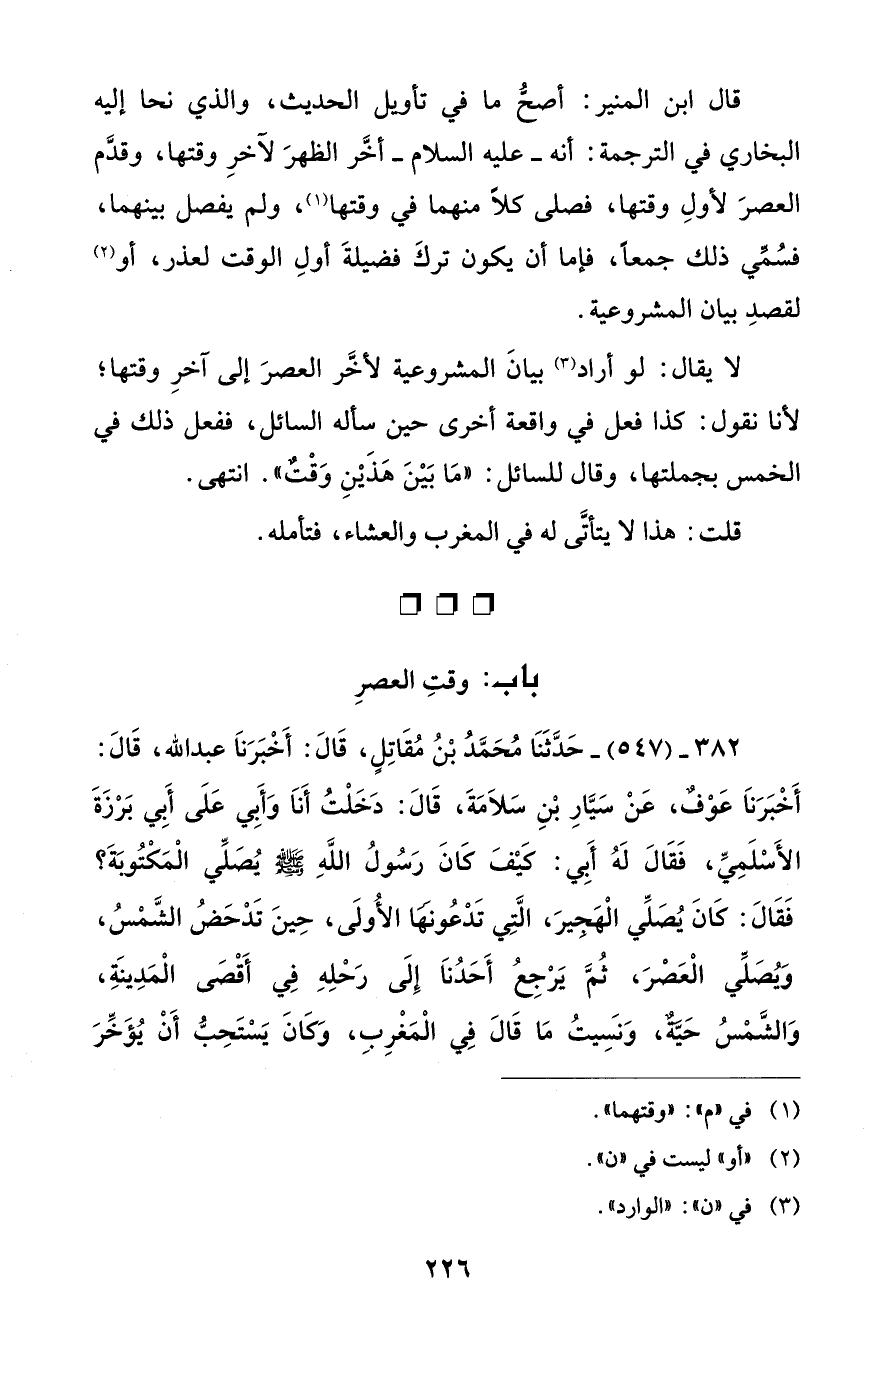 قال ابن المنير: أصحُّ ما في تأويل الحديث، والذي نحا إليه
البخاري في الترجمة: أنه ـ عليه السلام ـ أخَّر الظهرَ لآخرِ وقتها، وقدَّم
العصرَ لأولِ وقتها، فصلى كلاً منهما في وقتها(١)، ولم يفصل بينهما،
فسُمِّي ذلك جمعاً، فإما أن يكون تركَ فضيلةَ أولِ الوقت لعذر، أو(٢)
لقصدِ بيان المشروعية.
لا يقال: لو أراد(٣) بيانَ المشروعية لأخَّر العصرَ إلى آخرِ وقتها؛
لأنا نقول: كذا فعل في واقعة أخرى حين سأله السائل، ففعل ذلك في
الخمس بجملتها، وقال للسائل: «مَا بَيْنَ هَذَيْنِ وَقْتٌ». انتهى.
قلت: هذا لا يتأتَّى له في المغرب والعشاء، فتأمله.
باب: وقتِ العصرِ
٣٨٢ ـ (٥٤٧) ـ حَدَّثَنَا مُحَمَّدُ بْنُ مُقَاتِلٍ، قَالَ: أَخْبَرَنَا عبدالله، قَالَ:
أَخْبَرَنَا عَوْفٌ، عَنْ سَيَّارِ بْنِ سَلاَمَةَ، قَالَ: دَخَلْتُ أَنَا وَأَبِي عَلَى أَبِي بَرْزَةَ
الأَسْلَمِيِّ، فَقَالَ لَهُ أَبِي: كَيْفَ كَانَ رَسُولُ اللَّهِ ﷺ يُصَلِّي الْمَكْتُوبَةَ؟
فَقَالَ: كَانَ يُصَلِّي الْهَجِيرَ، الَّتِي تَدْعُونَهَا الأُولَى، حِينَ تَدْحَضُ الشَّمْسُ،
وَيُصَلِّي الْعَصْرَ، ثُمَّ يَرْجِعُ أَحَدُنَا إِلَى رَحْلِهِ فِي أَقْصَى الْمَدِينَةِ،
وَالشَّمْسُ حَيَّةٌ، وَنَسِيتُ مَا قَالَ فِي الْمَغْرِبِ، وَكَانَ يَسْتَحِبُّ أَنْ يُؤَخِّرَ
(١) في «م»: «وقتهما».
(٢) «أو» ليست في «ن».
(٣) في «ن»: «الوارد».
٢٢٦